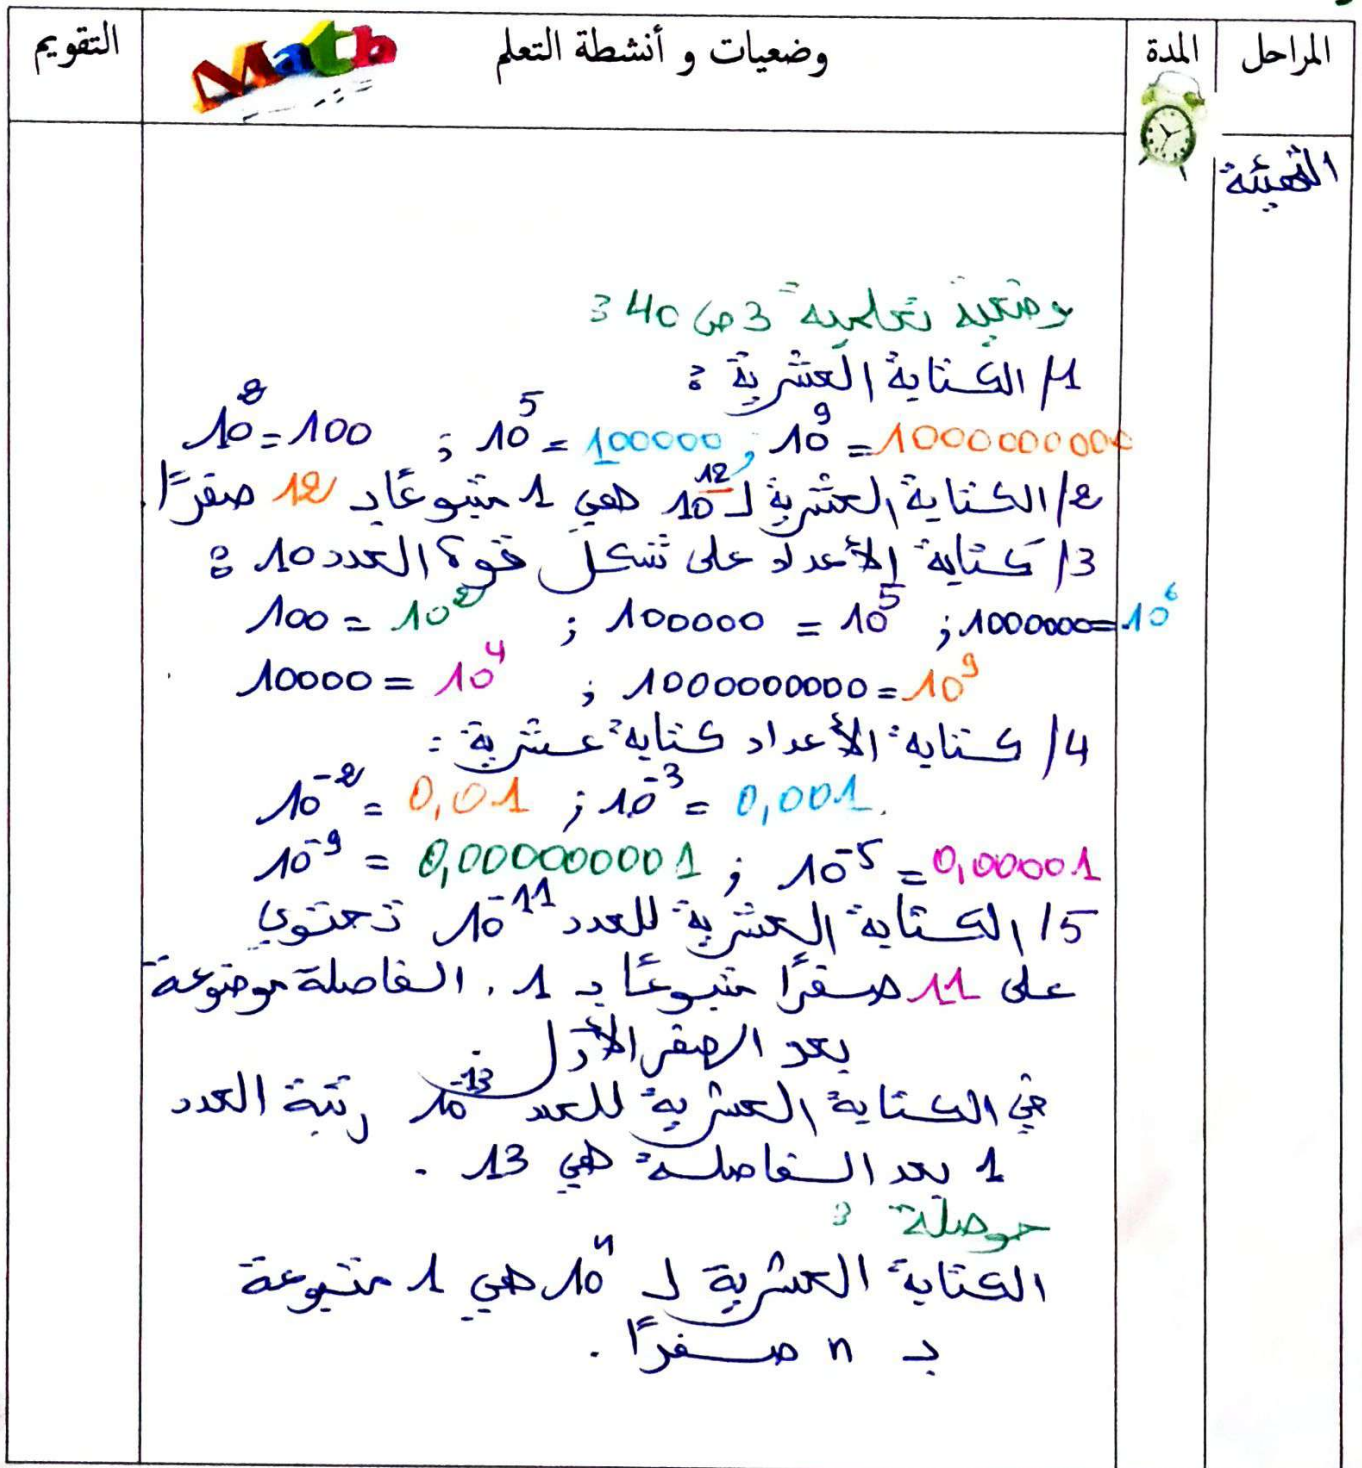 المراحل
المدة
وضعيات و أنشطة التعلم
Math
التقويم
التهيئة
وضعية تعلمية 3 ص 40 :
1/ الكتابة العشرية :
10² = 100 ; 10⁵ = 100000 ; 10⁹ = 1000000000
2/ الكتابة العشرية لـ 10¹² هي 1 متبوعًا بـ 12 صفرًا.
3/ كتابة الأعداد على شكل قوة العدد 10 :
100 = 10² ; 100000 = 10⁵ ; 1000000 = 10⁶
10000 = 10⁴ ; 1000000000 = 10⁹
4/ كتابة الأعداد كتابة عشرية :
10⁻² = 0,01 ; 10⁻³ = 0,001.
10⁻⁹ = 0,000000001 ; 10⁻⁵ = 0,00001
5/ الكتابة العشرية للعدد 10⁻¹¹ تحتوي
على 11 صفرًا متبوعًا بـ 1 . الفاصلة موضوعة
بعد الصفر الأول
في الكتابة العشرية للعدد 10⁻¹³ رتبة العدد
1 بعد الفاصلة هي 13 .
حوصلة :
الكتابة العشرية لـ 10ⁿ هي 1 متبوعة
بـ n صفرًا .